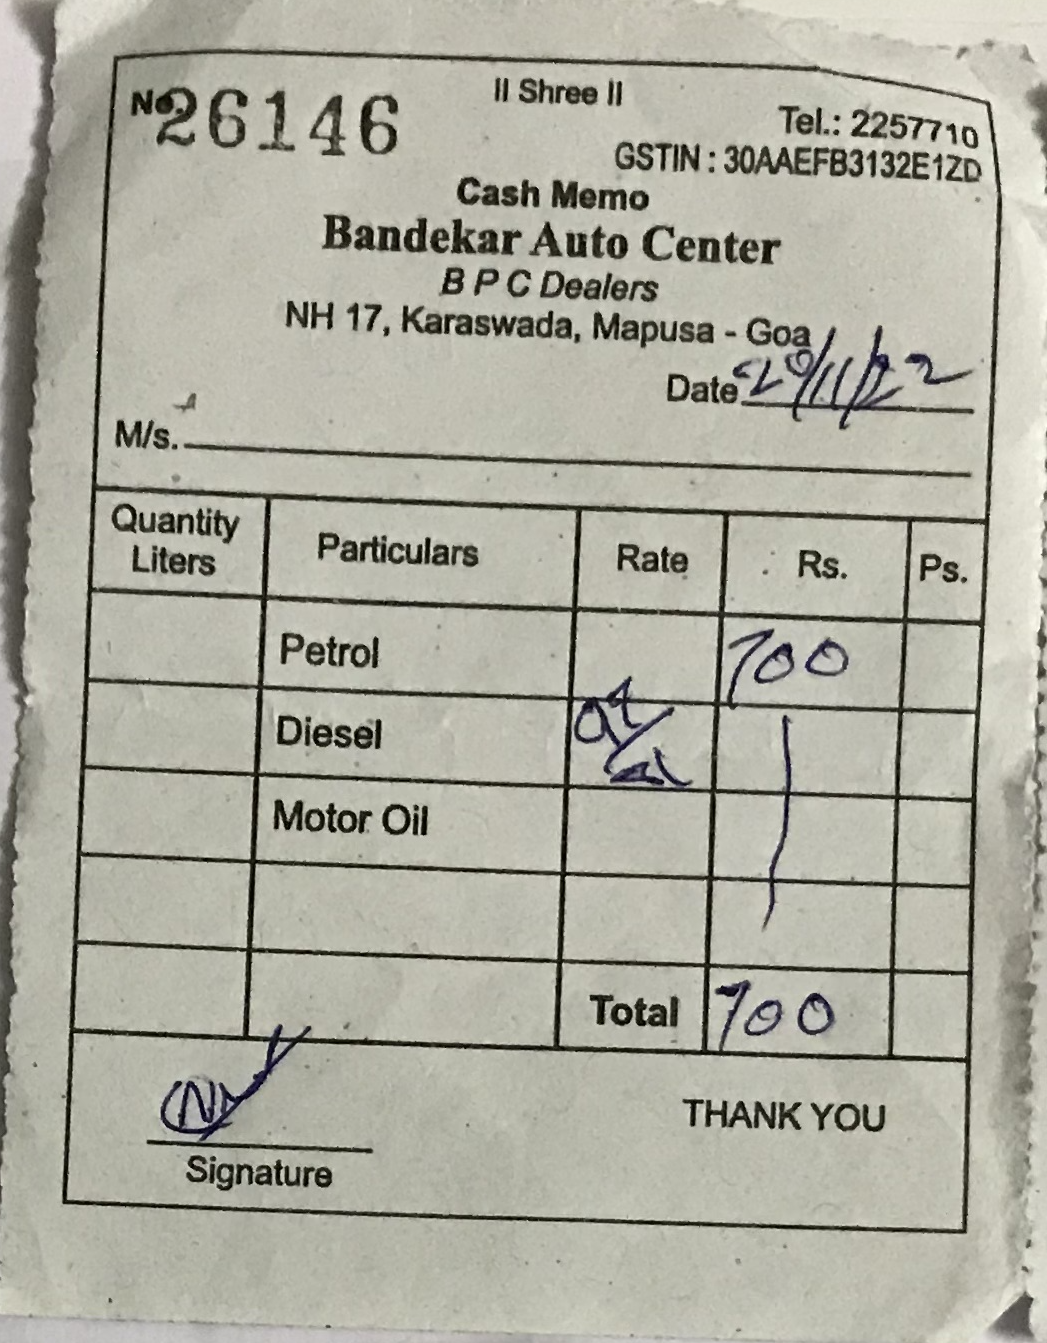 II Shree II
No. 26146
Tel.: 2257710
GSTIN : 30AAEFB3132E1ZD
Cash Memo
Bandekar Auto Center
B P C Dealers
NH 17, Karaswada, Mapusa - Goa
Date 20/11/22
M/s.
Quantity Liters Particulars Rate Rs. Ps.
Petrol 700
Diesel
Motor Oil
Total 700
THANK YOU
Signature